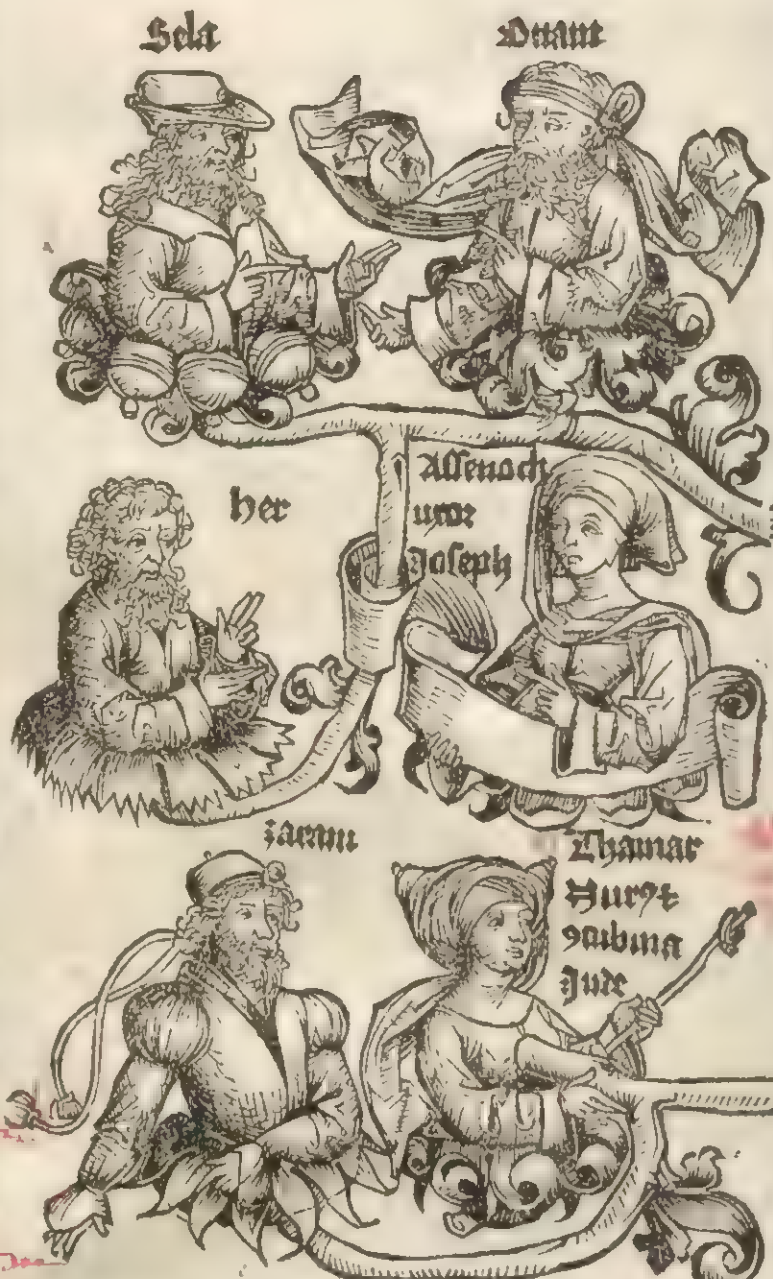 Sela
Onam
her
Assenach
uxor
Joseph
zaram
Thamar
Nurꝰ &
ꝯcubina
Jude